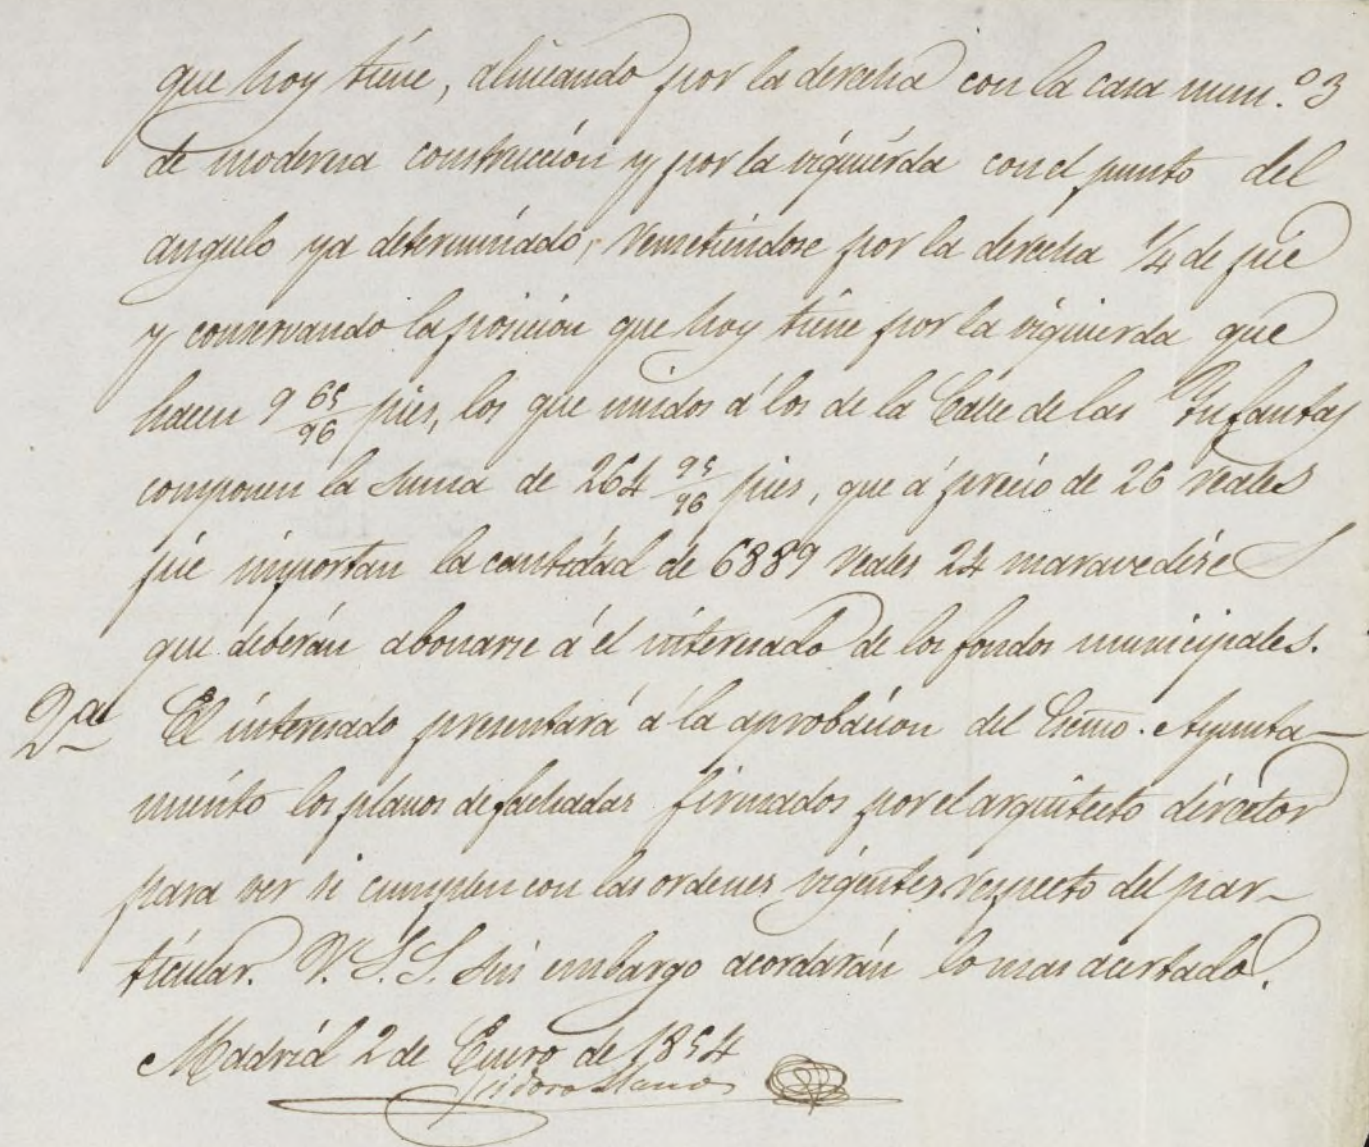 que hoy tiene, alineando por la derecha con la casa num.º 3
de moderna construccion y por la izquierda con el punto del
angulo ya determinado, remetiendose por la derecha 1/4 de pie
y conservando la posicion que hoy tiene por la izquierda que
hacen 9 65/96 pies, los que unidos á los de la Calle de las Infantas
componen la suma de 264 95/96 pies, que á precio de 26 reales
pie importan la cantidad de 6889 reales 24 maravedises
que deberán abonarse á el interesado de los fondos municipales.
2ª El interesado presentará á la aprobacion del Excmo. Ayunta-
miento los planos de fachadas firmados por el arquitecto director
para ver si cumplen con las ordenes vigentes respecto del par-
ticular. V.S.S. sin embargo acordarán lo mas acertado.
Madrid 2 de Enero de 1854
Isidoro Llanos